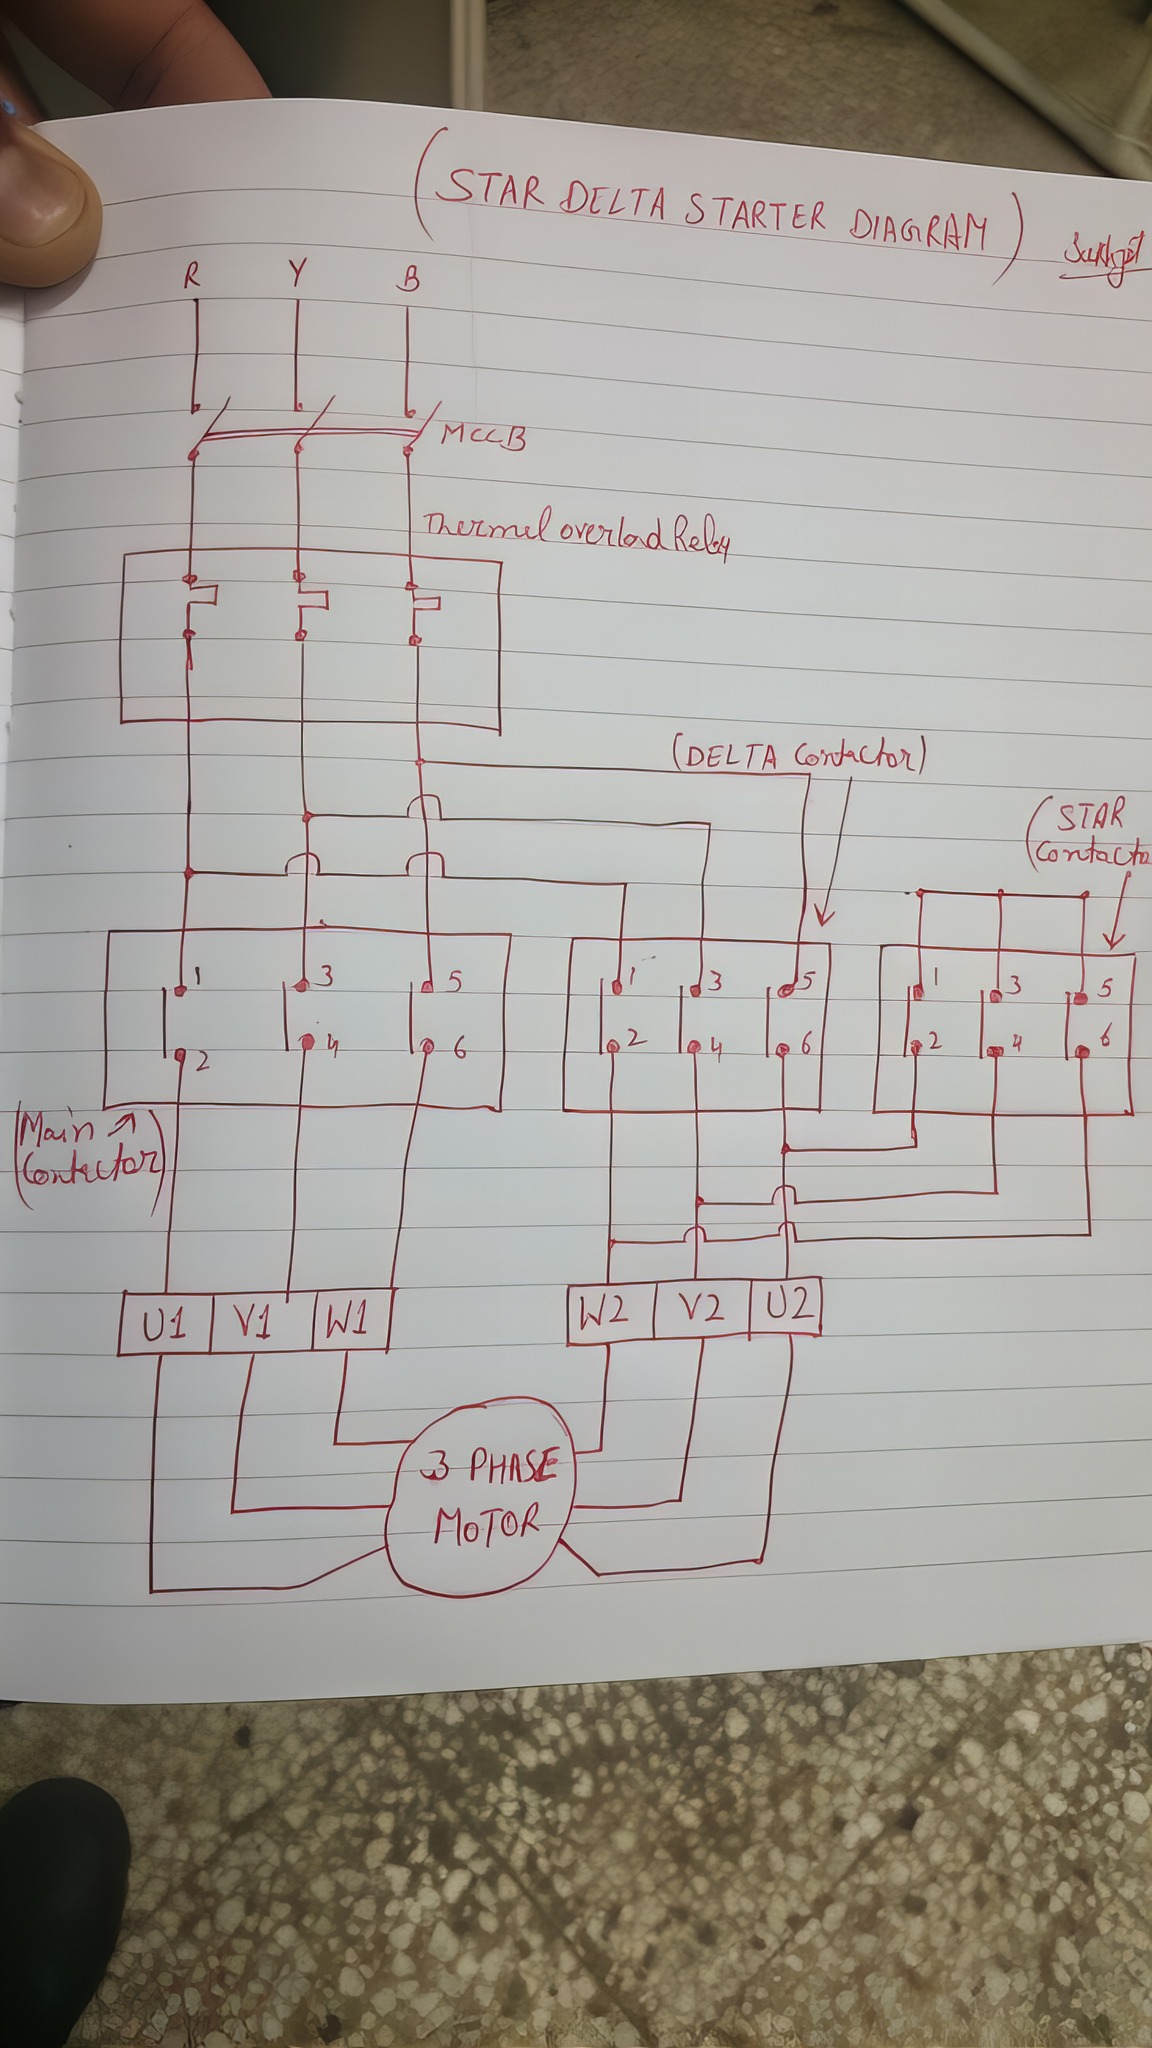 (STAR DELTA STARTER DIAGRAM)
R Y B
MCCB
Thermal overload Relay
(DELTA Contactor)
(STAR
Contacto
1 3 5
2 4 6
1 3 5
2 4 6
1 3 5
2 4 6
(Main
Contactor)
U1 V1 W1
W2 V2 U2
3 PHASE
MOTOR